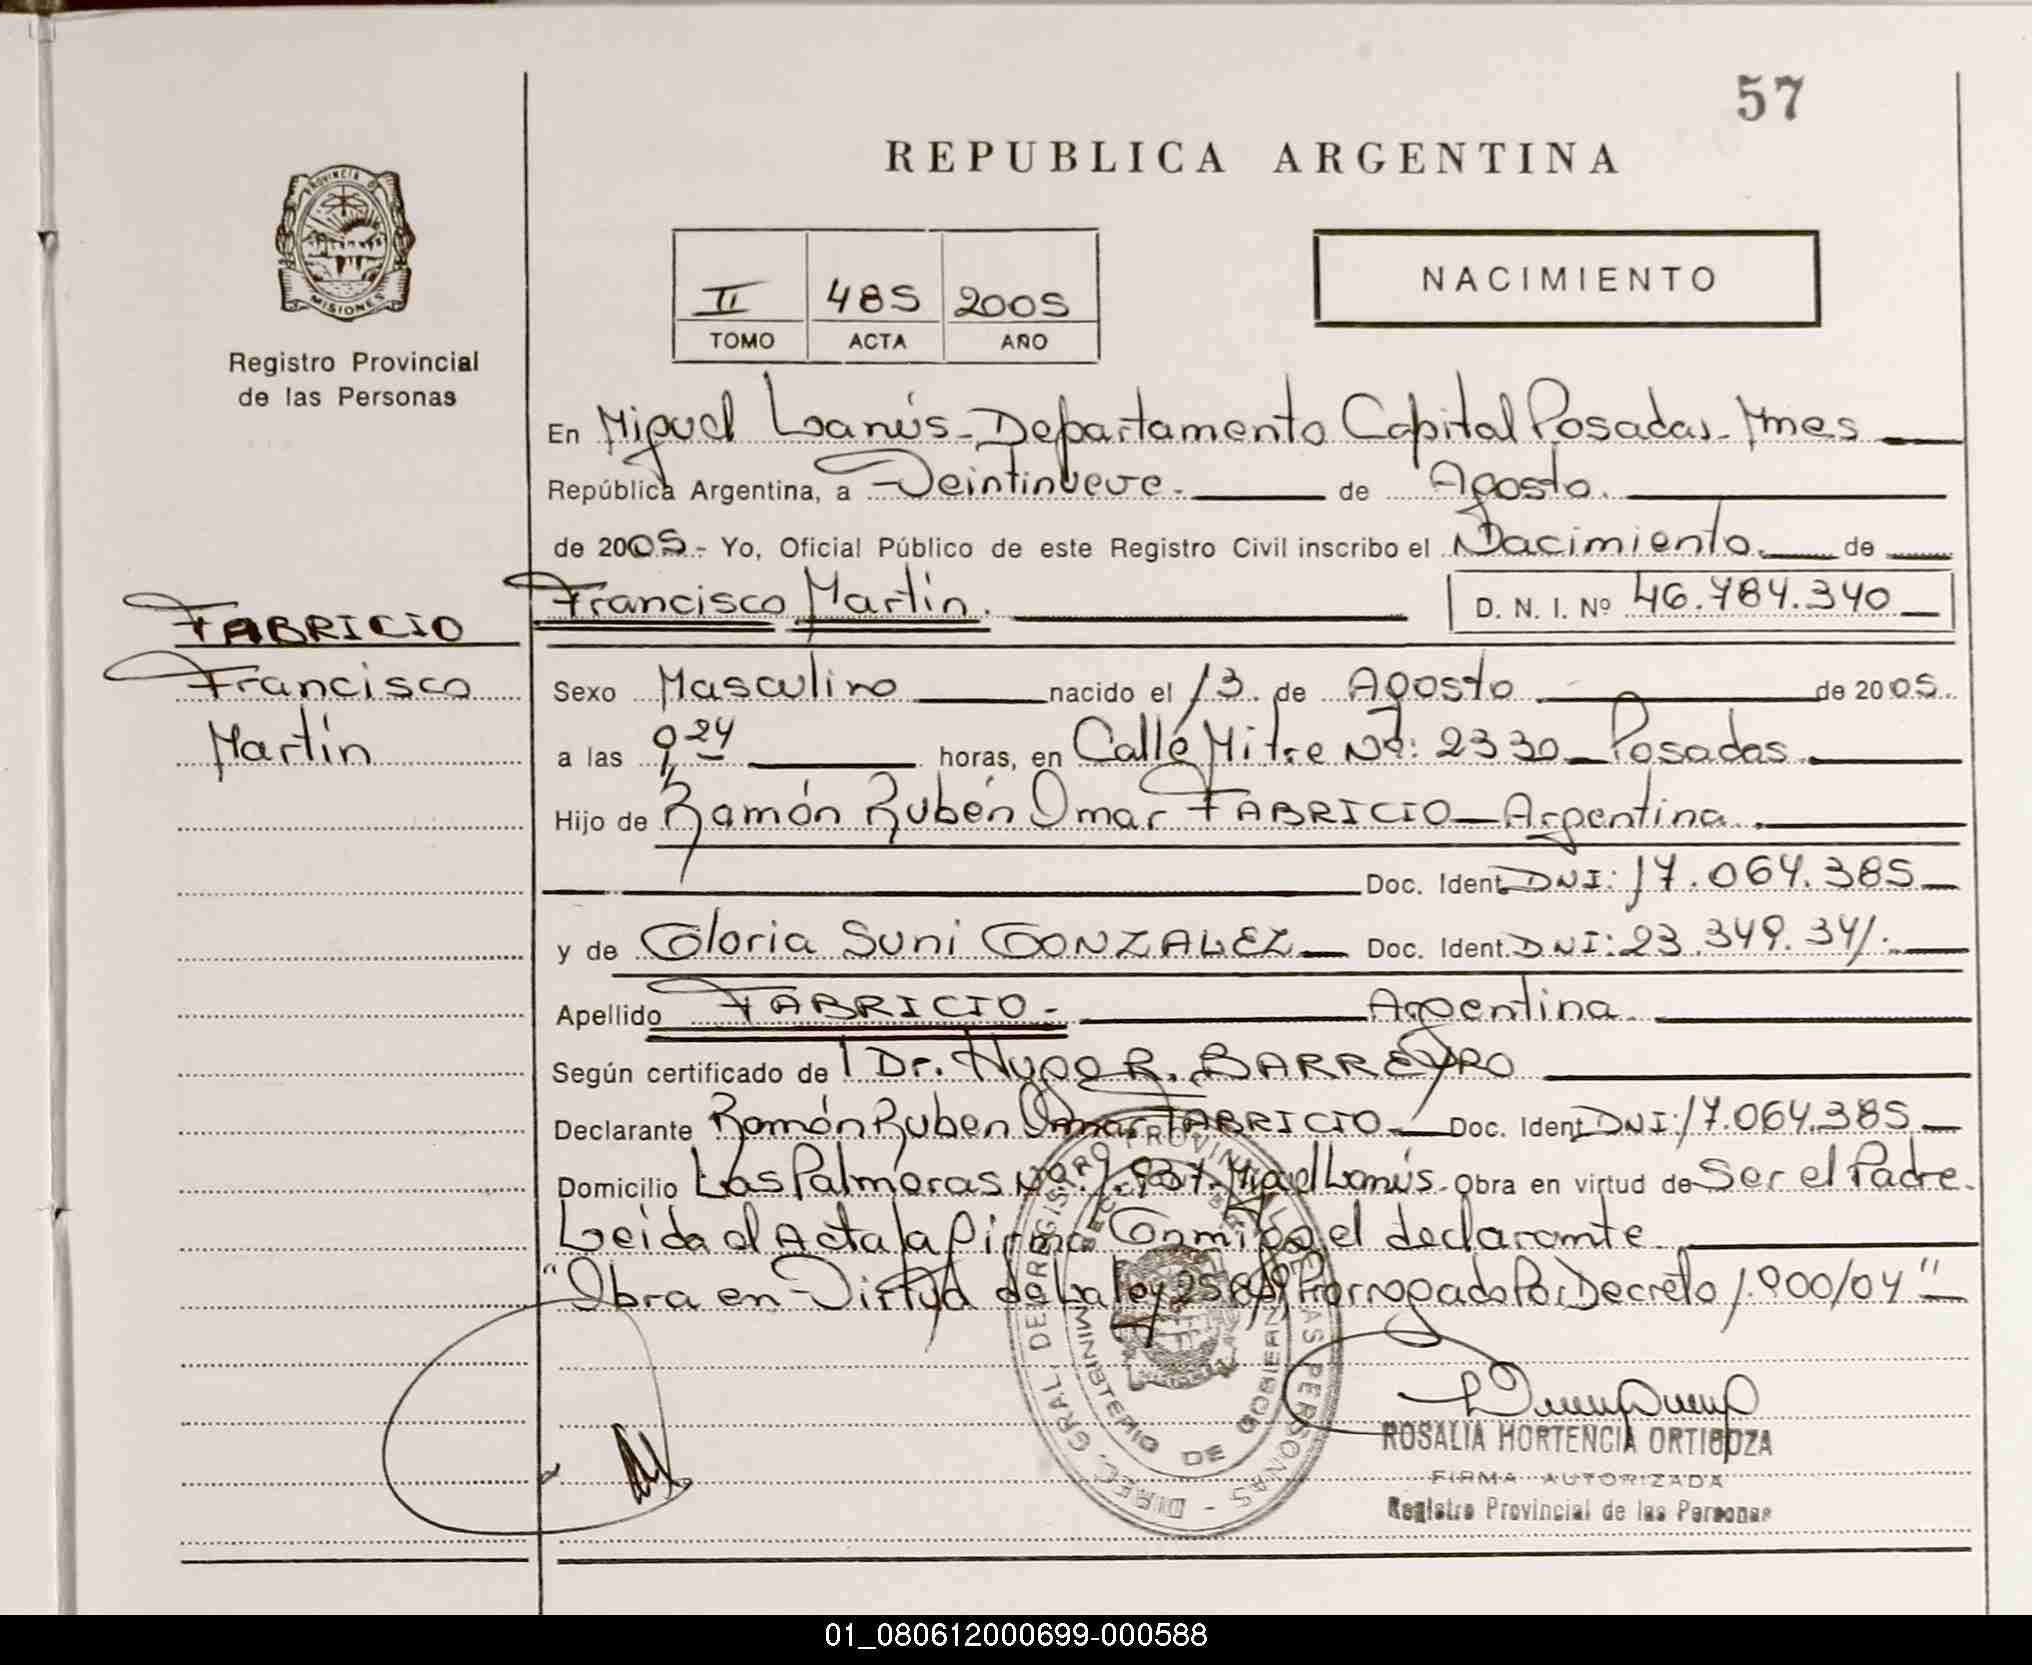 57
REPUBLICA ARGENTINA
PROVINCIA DE
MISIONES
Registro Provincial
de las Personas
II 485 2005
TOMO ACTA AÑO
NACIMIENTO
En Miguel Lanús - Departamento Capital Posadas - Mnes
República Argentina, a Veintinueve. de Agosto.
de 2005.- Yo, Oficial Público de este Registro Civil inscribo el Nacimiento. de
Francisco Martín. D. N. I. Nº 46.784.340
FABRICIO
Francisco
Martín
Sexo Masculino nacido el 13 de Agosto de 2005
a las 9,24 horas, en Calle Mitre Nº: 2330 - Posadas.
Hijo de Ramón Rubén Omar FABRICIO - Argentina.
Doc. Ident. DNI: 17.064.385
y de Gloria Suni GONZALEZ Doc. Ident. DNI: 23.349.341.
Apellido FABRICIO - Argentina.
Según certificado del Dr. Hugo R. BARREYRO
Declarante Ramón Ruben Omar FABRICIO Doc. Ident. DNI: 17.064.385
Domicilio Las Palmeras Nº: 1.937 - Miguel Lanús. Obra en virtud de Ser el Padre.
Leida el Acta la firma Conmigo el declarante
"Obra en Virtud de la Ley 25819 Prorrogado Por Decreto 1.900/04"
DIREC. GRAL. DEL REGISTRO PROVINCIAL DE LAS PERSONAS
MINISTERIO DE GOBIERNO
ROSALIA HORTENCIA ORTIGOZA
FIRMA AUTORIZADA
Registro Provincial de las Personas
01_080612000699-000588